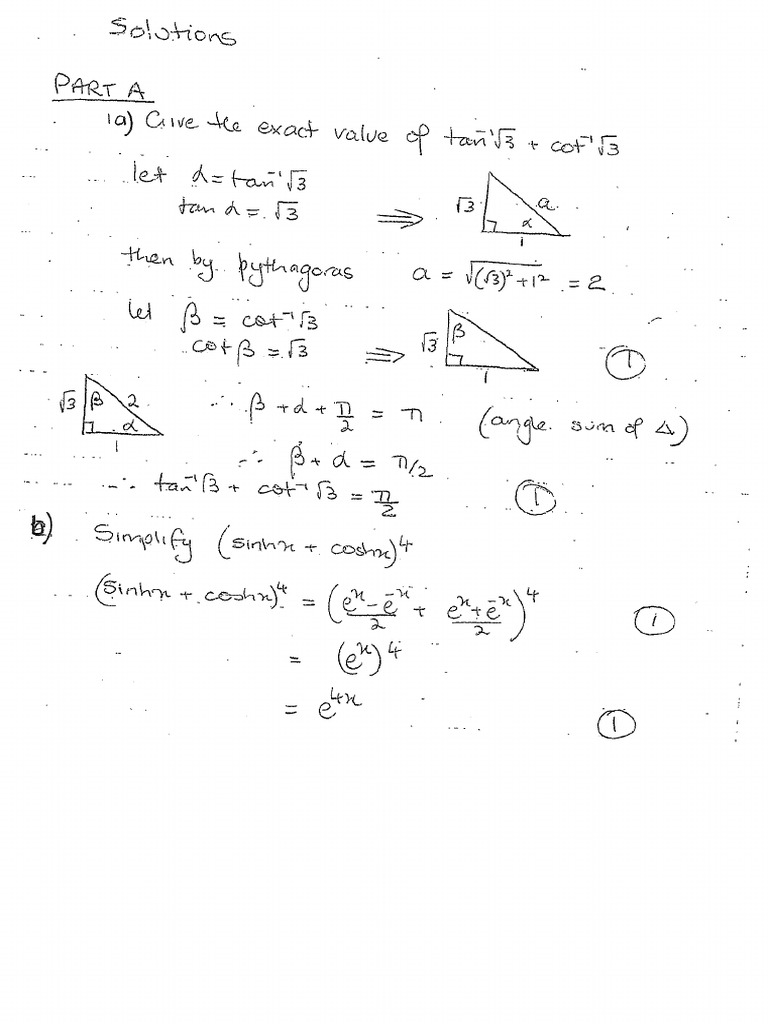 Solutions
PART A
1a) Give the exact value of tan⁻¹√3 + cot⁻¹√3
let α = tan⁻¹√3
tan α = √3 ⟹ √3 a α 1
then by pythagoras a = √((√3)² + 1²) = 2
let β = cot⁻¹√3
cot β = √3 ⟹ √3 β 1 ①
√3 β 2 α 1 ∴ β + α + π/2 = π (angle sum of Δ)
∴ β + α = π/2
∴ tan⁻¹√3 + cot⁻¹√3 = π/2 ①
b) Simplify (sinhx + coshx)⁴
(sinhx + coshx)⁴ = ((eˣ - e⁻ˣ)/2 + (eˣ + e⁻ˣ)/2)⁴ ①
= (eˣ)⁴
= e⁴ˣ ①